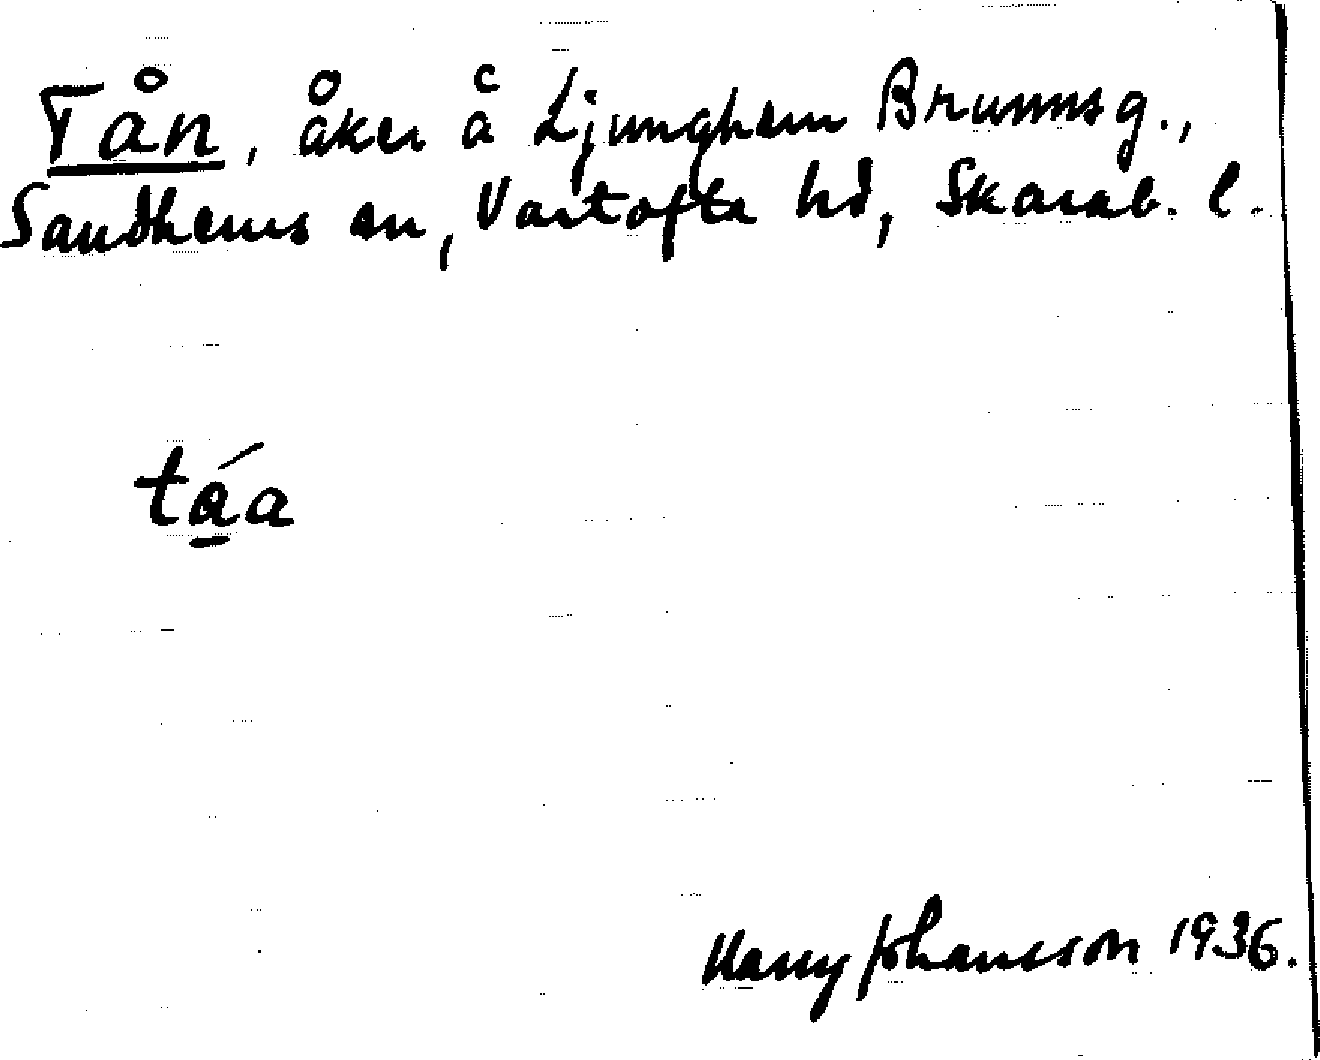 Tån, åker å Ljunghem Brunnsg.,
Sandhems sn, Vartofta hd, Skarab. l.
tá̱a
Harry Johansson 1936.